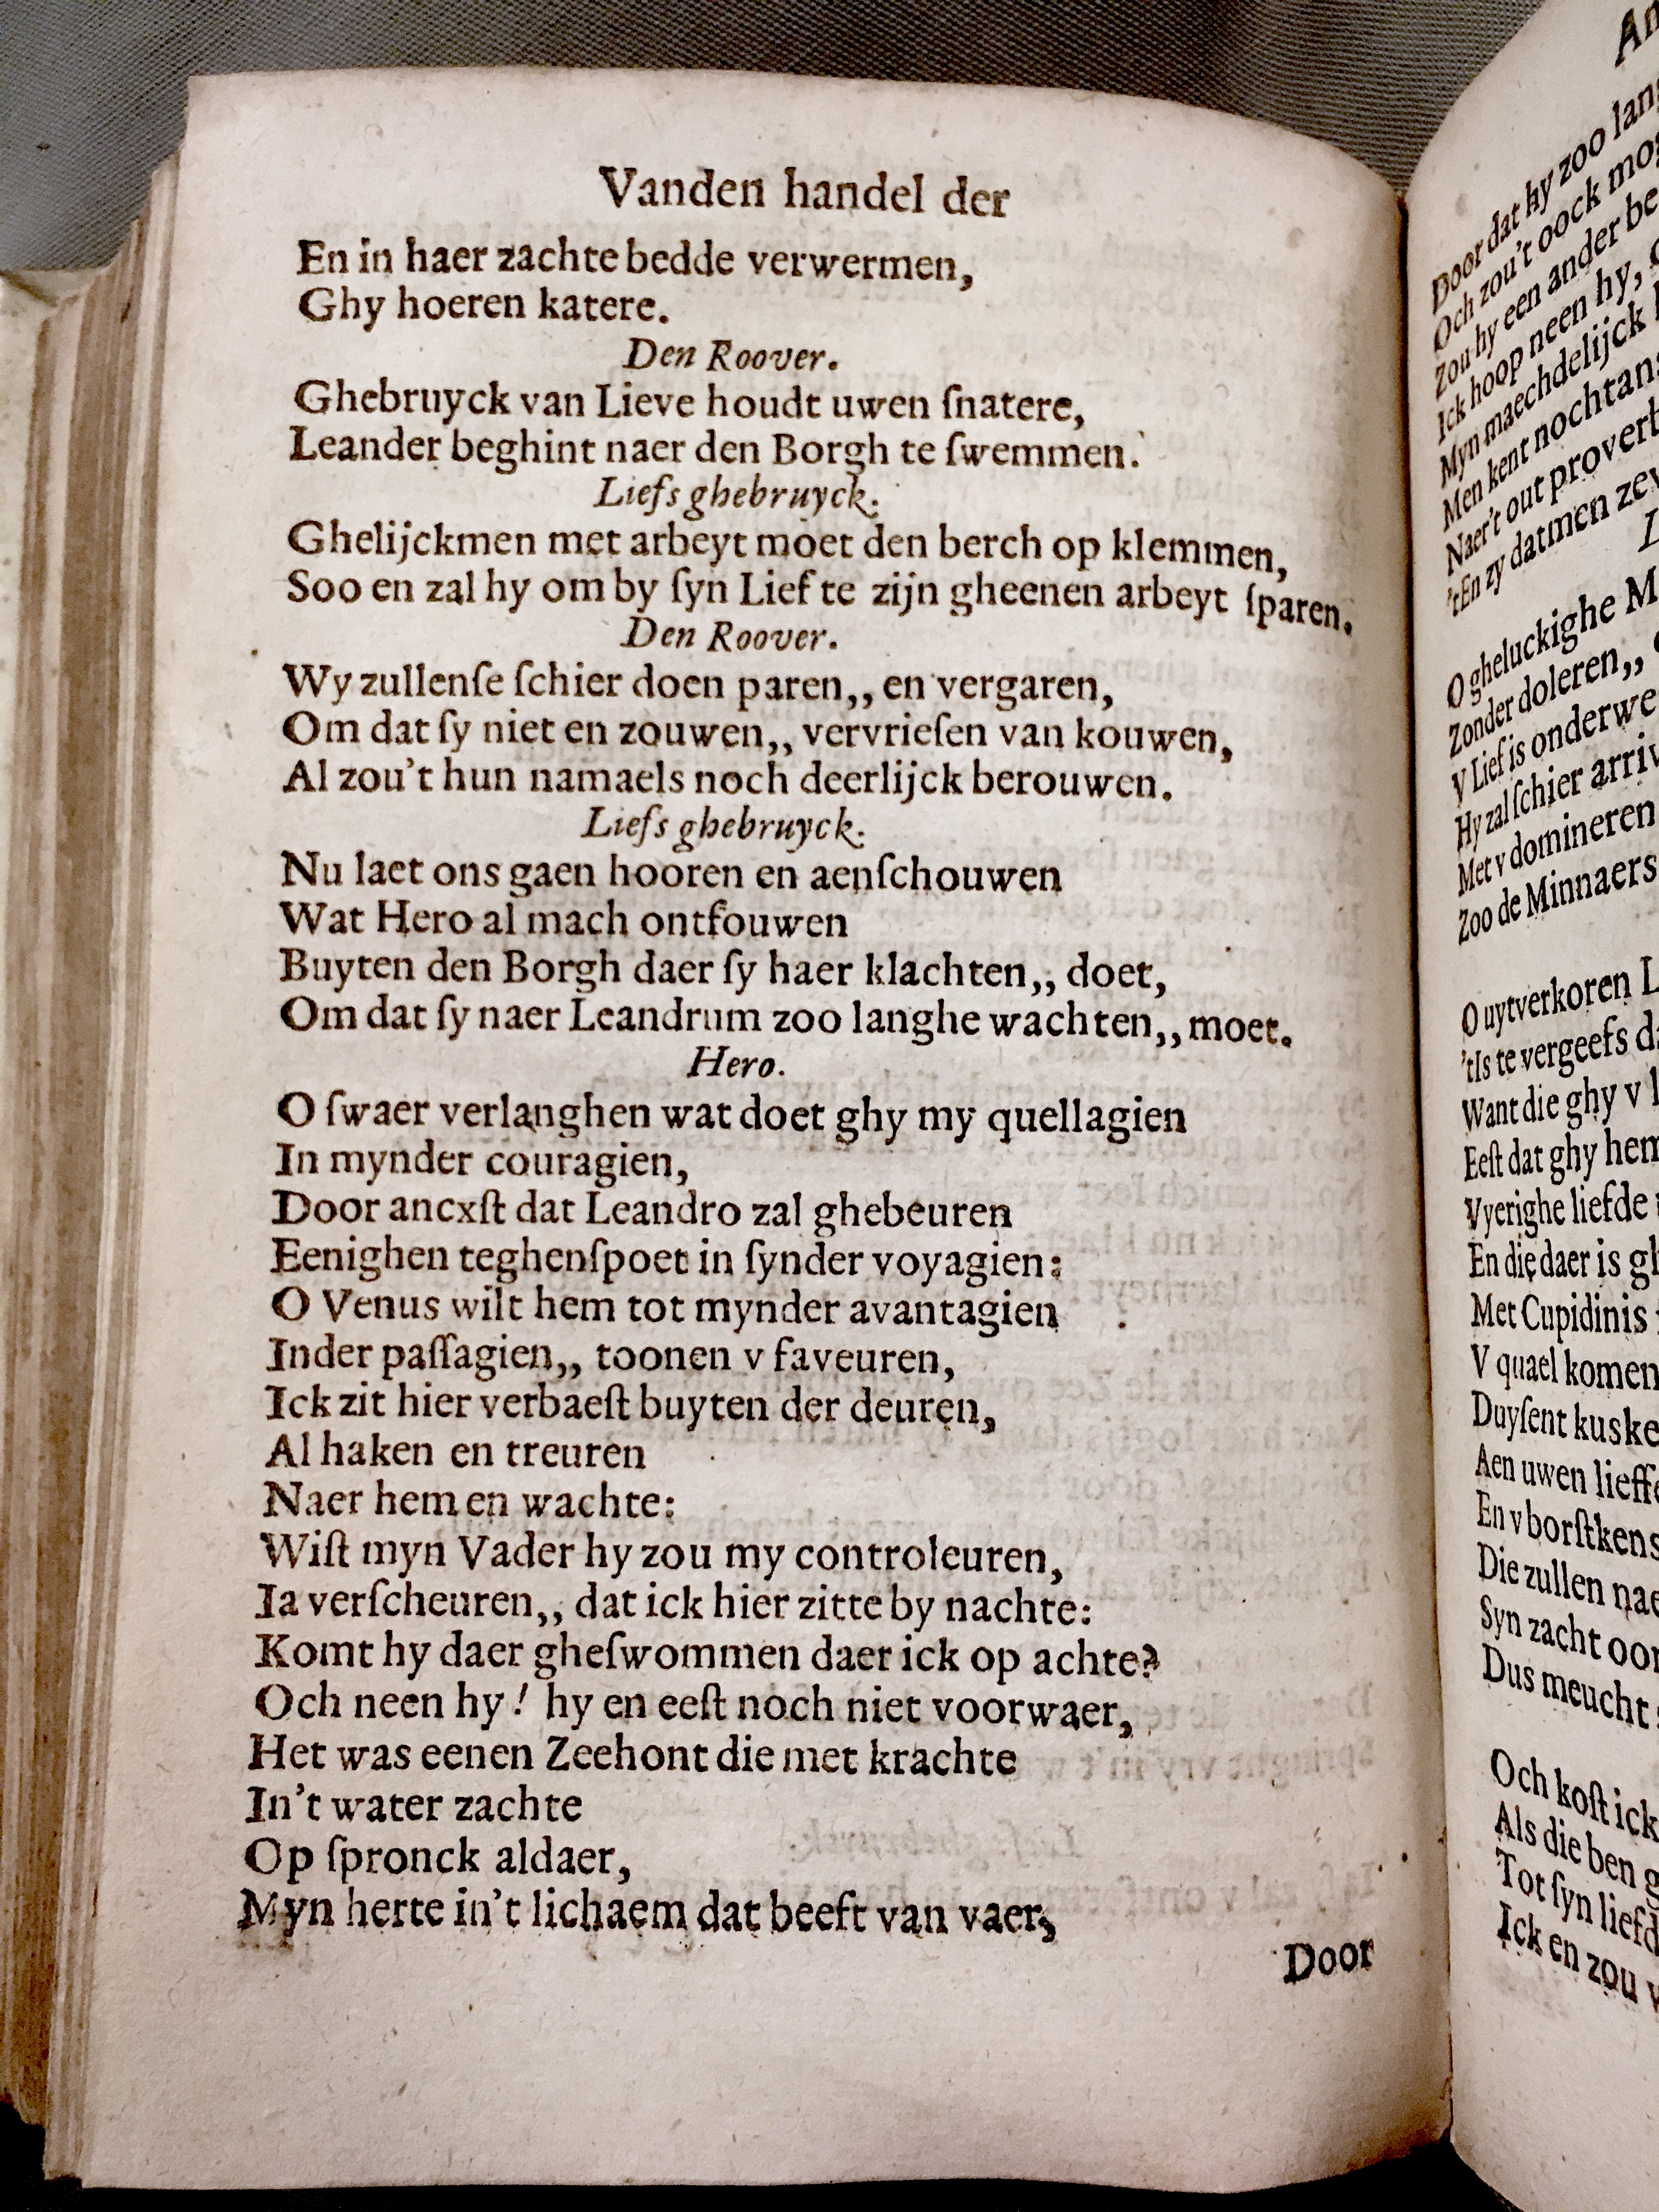 Vanden handel der
En in haer zachte bedde verwermen,
Ghy hoeren katere.
Den Roover.
Ghebruyck van Lieve houdt uwen ſnatere,
Leander beghint naer den Borgh te ſwemmen.
Liefs ghebruyck.
Ghelijckmen met arbeyt moet den berch op klemmen,
Soo en zal hy om by ſyn Lief te zijn gheenen arbeyt ſparen.
Den Roover.
Wy zullenſe ſchier doen paren,, en vergaren,
Om dat ſy niet en zouwen,, vervrieſen van kouwen,
Al zou't hun namaels noch deerlijck berouwen.
Liefs ghebruyck.
Nu laet ons gaen hooren en aenſchouwen
Wat Hero al mach ontfouwen
Buyten den Borgh daer ſy haer klachten,, doet,
Om dat ſy naer Leandrum zoo langhe wachten,, moet.
Hero.
O ſwaer verlanghen wat doet ghy my quellagien
In mynder couragien,
Door ancxſt dat Leandro zal ghebeuren
Eenighen teghenſpoet in ſynder voyagien:
O Venus wilt hem tot mynder avantagien
Inder paſſagien,, toonen v faveuren,
Ick zit hier verbaeſt buyten der deuren,
Al haken en treuren
Naer hem en wachte:
Wiſt myn Vader hy zou my controleuren,
Ia verſcheuren,, dat ick hier zitte by nachte:
Komt hy daer gheſwommen daer ick op achte?
Och neen hy! hy en eeſt noch niet voorwaer,
Het was eenen Zeehont die met krachte
In't water zachte
Op ſpronck aldaer,
Myn herte in't lichaem dat beeft van vaer,
Door
Door dat hy zoo
Och zou't oock
Zou hy een ander
Ick hoop neen hy,
Myn maechdelijck
Men kent nochtans
Naer't out
'tEn zy datmen
O gheluckighe
Zonder doleren,,
V Lief is
Hy zal ſchier
Met v domineren
Zoo de Minnaers
O uytverkoren
'tIs te vergeefs
Want die ghy v
Eeſt dat ghy
Vyerighe liefde
En die daer is
Met Cupidinis
V quael komen
Duyſent
Aen uwen
En v borſtkens
Die zullen
Syn zacht
Dus meucht
Och koſt ick
Als die ben
Tot ſyn
Ick en zou